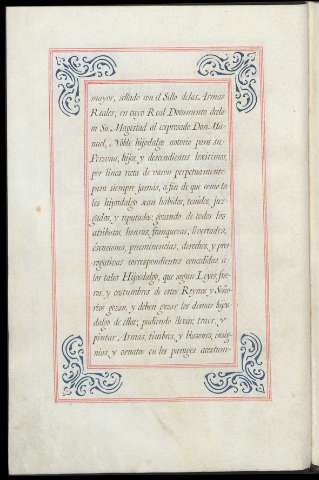 mayor, sellado con el Sello de las Armas
Reales, en cuyo Real Documento decla
ra Su Magestad al expresado Don Ma-
nuel, Noble hijodalgo notorio para su
Persona, hijos y descendientes lexitimos,
por linea recta de varon perpetuamente
para siempre jamás, a fin de que como ta
les hijosdalgo sean habidos, tenidos, juz-
gados, y reputados: gozando de todos los
atributos, honras, franquezas, livertades,
esenciones, preeminencias, derechos, y pre
rogativas correspondientes concedidas á
los tales Hijosdalgo, que segun Leyes, fue
ros, y costumbres de estos Reynos y Seño-
rios gozan, y deben gozar los demas hijos
dalgo de ellos; pudiendo llevar, traer, y
pintar Armas, timbres, y blasones, insig-
nias, y ornatos en los parages acostum-